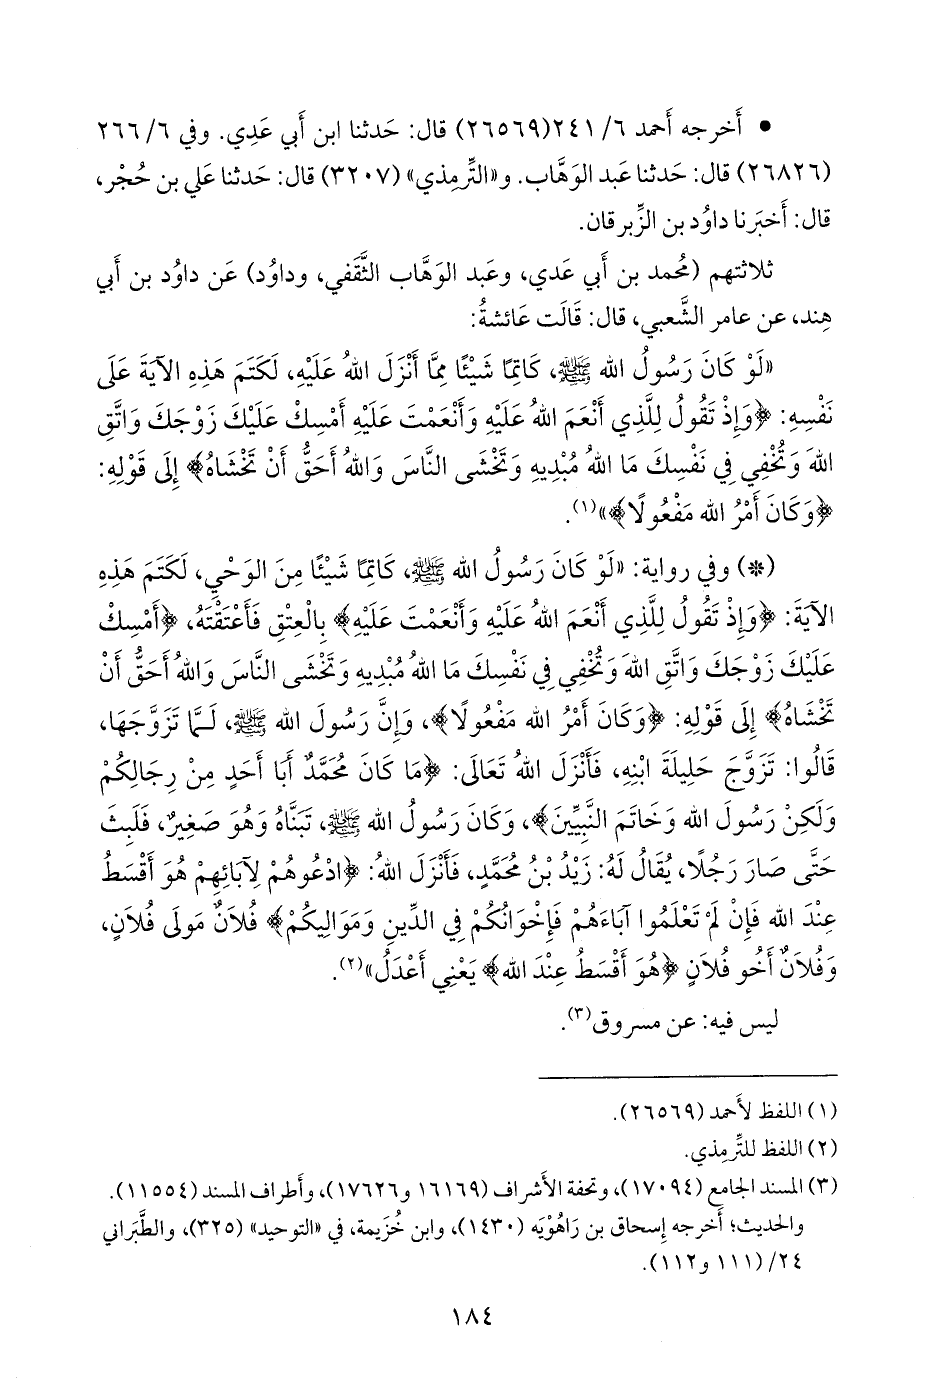 • أَخرجه أَحمد ٦/ ٢٤١(٢٦٥٦٩) قال: حَدثنا ابن أَبي عَدِي. وفي ٦/ ٢٦٦
(٢٦٨٢٦) قال: حَدثنا عَبد الوَهَّاب. و«التِّرمِذي» (٣٢٠٧) قال: حَدثنا علي بن حُجْر،
قال: أَخبَرنا داوُد بن الزِّبرقان.
ثلاثتهم (مُحمد بن أَبي عَدي، وعَبد الوَهَّاب الثَّقَفي، وداوُد) عَن داوُد بن أَبي
هِند، عن عامر الشَّعبي، قال: قَالَت عَائشةُ:
«لَوْ كَانَ رَسُولُ الله ﷺ، كَاتِمًا شَيْئًا مِمَّا أَنْزَلَ اللهُ عَلَيْهِ، لَكَتَمَ هَذِهِ الآيَةَ عَلَى
نَفْسِهِ: ﴿وَإِذْ تَقُولُ لِلَّذِي أَنْعَمَ اللهُ عَلَيْهِ وَأَنْعَمْتَ عَلَيْهِ أَمْسِكْ عَلَيْكَ زَوْجَكَ وَاتَّقِ
اللهَ وَتُخْفِي فِي نَفْسِكَ مَا اللهُ مُبْدِيهِ وَتَخْشَى النَّاسَ وَاللهُ أَحَقُّ أَنْ تَخْشَاهُ﴾ إِلَى قَوْلِهِ:
﴿وَكَانَ أَمْرُ الله مَفْعُولًا﴾»(١).
(*) وفي رواية: «لَوْ كَانَ رَسُولُ الله ﷺ، كَاتِمًا شَيْئًا مِنَ الوَحْيِ، لَكَتَمَ هَذِهِ
الآيَةَ: ﴿وَإِذْ تَقُولُ لِلَّذِي أَنْعَمَ اللهُ عَلَيْهِ وَأَنْعَمْتَ عَلَيْهِ﴾ بِالْعِتْقِ فَأَعْتَقْتَهُ، ﴿أَمْسِكْ
عَلَيْكَ زَوْجَكَ وَاتَّقِ اللهَ وَتُخْفِي فِي نَفْسِكَ مَا اللهُ مُبْدِيهِ وَتَخْشَى النَّاسَ وَاللهُ أَحَقُّ أَنْ
تَخْشَاهُ﴾ إِلَى قَوْلِهِ: ﴿وَكَانَ أَمْرُ الله مَفْعُولًا﴾، وَإِنَّ رَسُولَ الله ﷺ، لَمَّا تَزَوَّجَهَا،
قَالُوا: تَزَوَّجَ حَلِيلَةَ ابْنِهِ، فَأَنْزَلَ اللهُ تَعَالَى: ﴿مَا كَانَ مُحَمَّدٌ أَبَا أَحَدٍ مِنْ رِجَالِكُمْ
وَلَكِنْ رَسُولَ الله وَخَاتَمَ النَّبِيِّينَ﴾، وَكَانَ رَسُولُ الله ﷺ، تَبَنَّاهُ وَهُوَ صَغِيرٌ، فَلَبِثَ
حَتَّى صَارَ رَجُلًا، يُقَالُ لَهُ: زَيْدُ بْنُ مُحَمَّدٍ، فَأَنْزَلَ اللهُ: ﴿ادْعُوهُمْ لِآبَائِهِمْ هُوَ أَقْسَطُ
عِنْدَ الله فَإِنْ لَمْ تَعْلَمُوا آبَاءَهُمْ فَإِخْوَانُكُمْ فِي الدِّينِ وَمَوَالِيكُمْ﴾ فُلَانٌ مَولَى فُلَانٍ،
وَفُلَانٌ أَخُو فُلَانٍ ﴿هُوَ أَقْسَطُ عِنْدَ الله﴾ يَعْنِي أَعْدَلُ»(٢).
ليس فيه: عن مسروق(٣).
(١) اللفظ لأَحمد (٢٦٥٦٩).
(٢) اللفظ للتِّرمِذي.
(٣) المسند الجامع (١٧٠٩٤)، وتحفة الأَشراف (١٦١٦٩ و١٧٦٢٦)، وأَطراف المسند (١١٥٥٤).
والحديث؛ أَخرجه إِسحاق بن رَاهُوْيَه (١٤٣٠)، وابن خُزَيمة، في «التوحيد» (٣٢٥)، والطَّبَراني
٢٤/ (١١١ و١١٢).
١٨٤